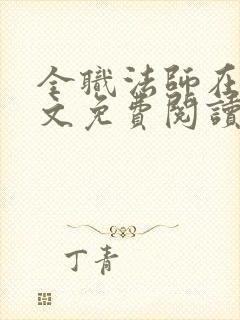 全職法師在
文免費閱讀
丁青